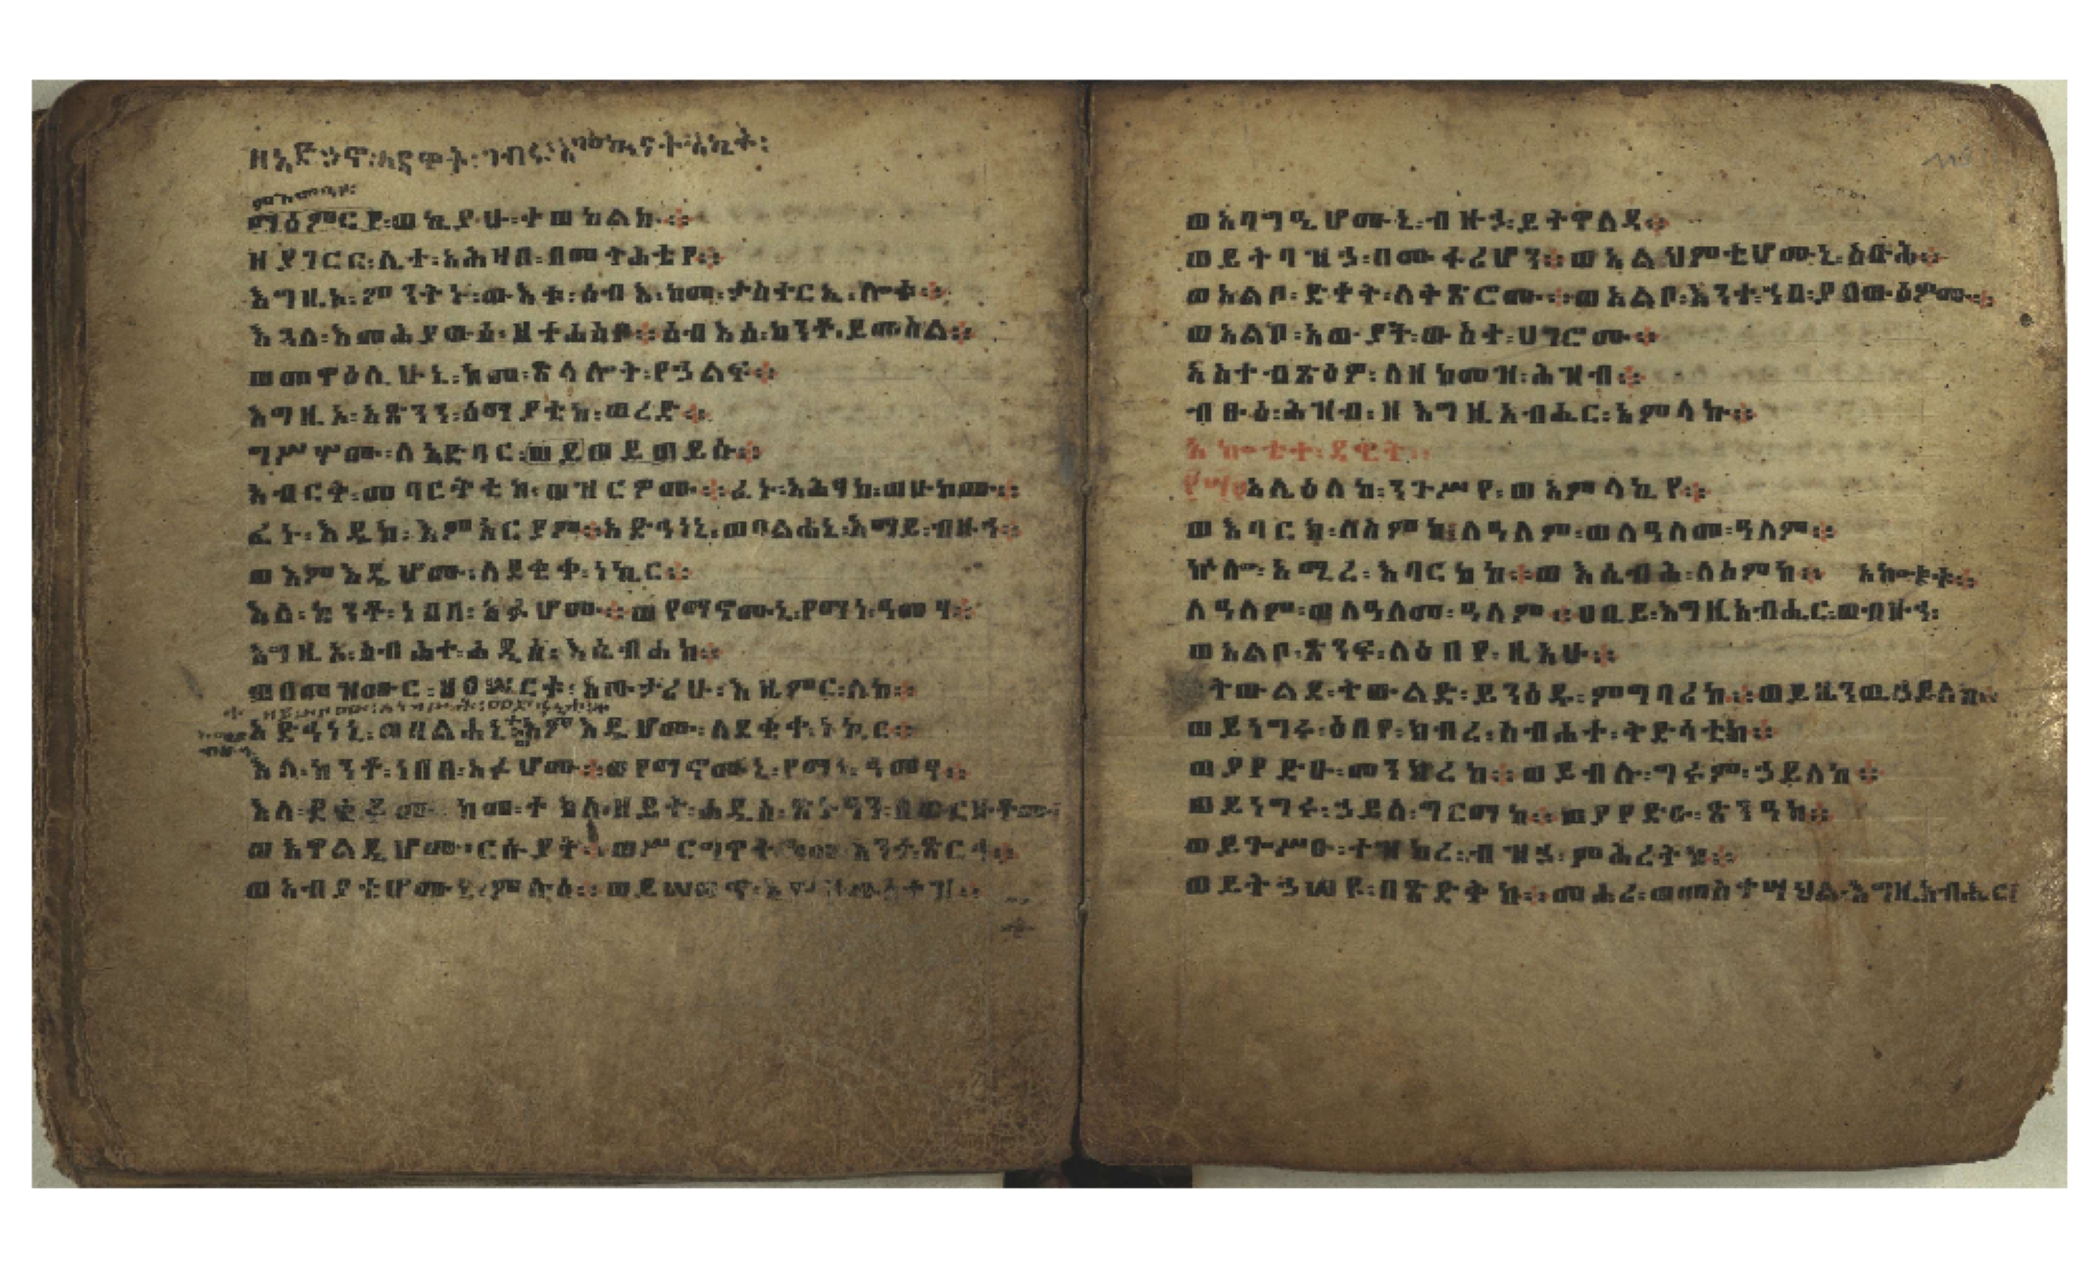 ዘአድኃኖ፡ ለዳዊት፡ ገብሩ፡ እምኲናት፡ እኪት፡
ምእመንየ፡
ወኪያሁ፡ ተወከልኩ፨
ዘያገርር፡ ሊተ፡ አሕዛበ፡ በመትሕቴየ፨
እግዚኦ፡ ምንትኑ፡ ውእቱ፡ ሰብእ፡ ከመ፡ ታስተርኢ፡ ሎቱ፨
እጓለ፡ እመሕያው፡ ዘተሐስቦ፨ ሰብእሰ፡ ከንቶ፡ ይመስል፨
ወመዋዕሊሁኒ፡ ከመ፡ ጽላሎት፡ የኃልፍ፨
እግዚኦ፡ አጽንን፡ ሰማያቲከ፡ ወረድ፨
ግሥሦሙ፡ ለአድባር፡ ወይጠይሱ፨
አብርቅ፡ መባርቅቲከ፡ ወዝርዎሙ፨ ፈኑ፡ አሕፃከ፡ ወሁኮሙ፨
ፈኑ፡ እዴከ፡ እምአርያም፨ አድኅነኒ፡ ወባልሐኒ፡ እማይ፡ ብዙኅ፨
ወእምእዴሆሙ፡ ለደቂቀ፡ ነኪር፨
እለ፡ ከንቶ፡ ነበበ፡ አፉሆሙ፨ ወየማኖሙኒ፡ የማነ፡ ዓመፃ፨
እግዚኦ፡ ስብሐተ፡ ሐዲሰ፡ እሴብሐከ፨
ወበመዝሙር፡ ዘዐሠርቱ፡ አውታሪሁ፡ እዜምር፡ ለከ፨
አድኅነኒ፡ ወባልሐኒ፡ እምእዴሆሙ፡ ለደቂቀ፡ ነኪር፨
እለ፡ ከንቶ፡ ነበበ፡ አፉሆሙ፨ ወየማኖሙኒ፡ የማነ፡ ዓመፃ፨
እለ፡ ደቂቆሙ፡ ከመ፡ ተክል፡ ሐዲስ፡ ጽኑዓን፡ በውርዙቶሙ፡
ወአዋልዲሆሙ፡ ርሱያት፨ ወሥርግዋት፡ ከመ፡ እንተ፡ ጽርሕ፨
ወአብያቲሆሙኒ፡ ምሉዕ፨
ወአባግዒሆሙኒ፡ ብዙኃ፡ ይትዋለዳ፨
ወይትባዝኃ፡ በሙፋሪሆን፨ ወአልህምቲሆሙኒ፡ ሥቡሕ፨
ወአልቦ፡ ድቀት፡ ለቅጽሮሙ፨ ወአልቦ፡ እንተ፡ ኀበ፡ ያበውዕዎሙ፨
ወአልቦ፡ አውያት፡ ውስተ፡ ሀገሮሙ፨
አስተብፅዕዎ፡ ለዘከመዝ፡ ሕዝብ፨
ብፁዕ፡ ሕዝብ፡ ዘእግዚአብሔር፡ አምላኩ፨
አኰቴተ፡ ዳዊት፨
አሌዕለከ፡ ንጉሥየ፡ ወአምላኪየ፨
ወእባርክ፡ ለስምከ፡ ለዓለም፡ ወለዓለመ፡ ዓለም፨
ኵሎ፡ አሚረ፡ እባርከከ፨ ወእሴብሕ፡ ለስምከ፨ አኰቴት፨
ለዓለም፡ ወለዓለመ፡ ዓለም፨ ዐቢይ፡ እግዚአብሔር፡ ወብዙኅ፡
ወአልቦ፡ ጽንፍ፡ ለዕበየ፡ ዚአሁ፨
ትውልደ፡ ትውልድ፡ ይንዕዱ፡ ምግባሪከ፨ ወይዜንዉ፡ ኃይለከ፨
ወይነግሩ፡ ዕበየ፡ ክብረ፡ ስብሐተ፡ ቅድሳቲከ፨
ወያየድዑ፡ መንክረከ፨ ወይብሉ፡ ግሩም፡ ኃይልከ፨
ወይነግሩ፡ ኃይለ፡ ግርማከ፨ ወያየድዑ፡ ጽንዓከ፨
ወይጐሥዑ፡ ተዝካረ፡ ብዝኃ፡ ምሕረትከ፨
ወይትኃሠዩ፡ በጽድቅከ፨ መሐሪ፡ ወመስተሣህል፡ እግዚአብሔር፡